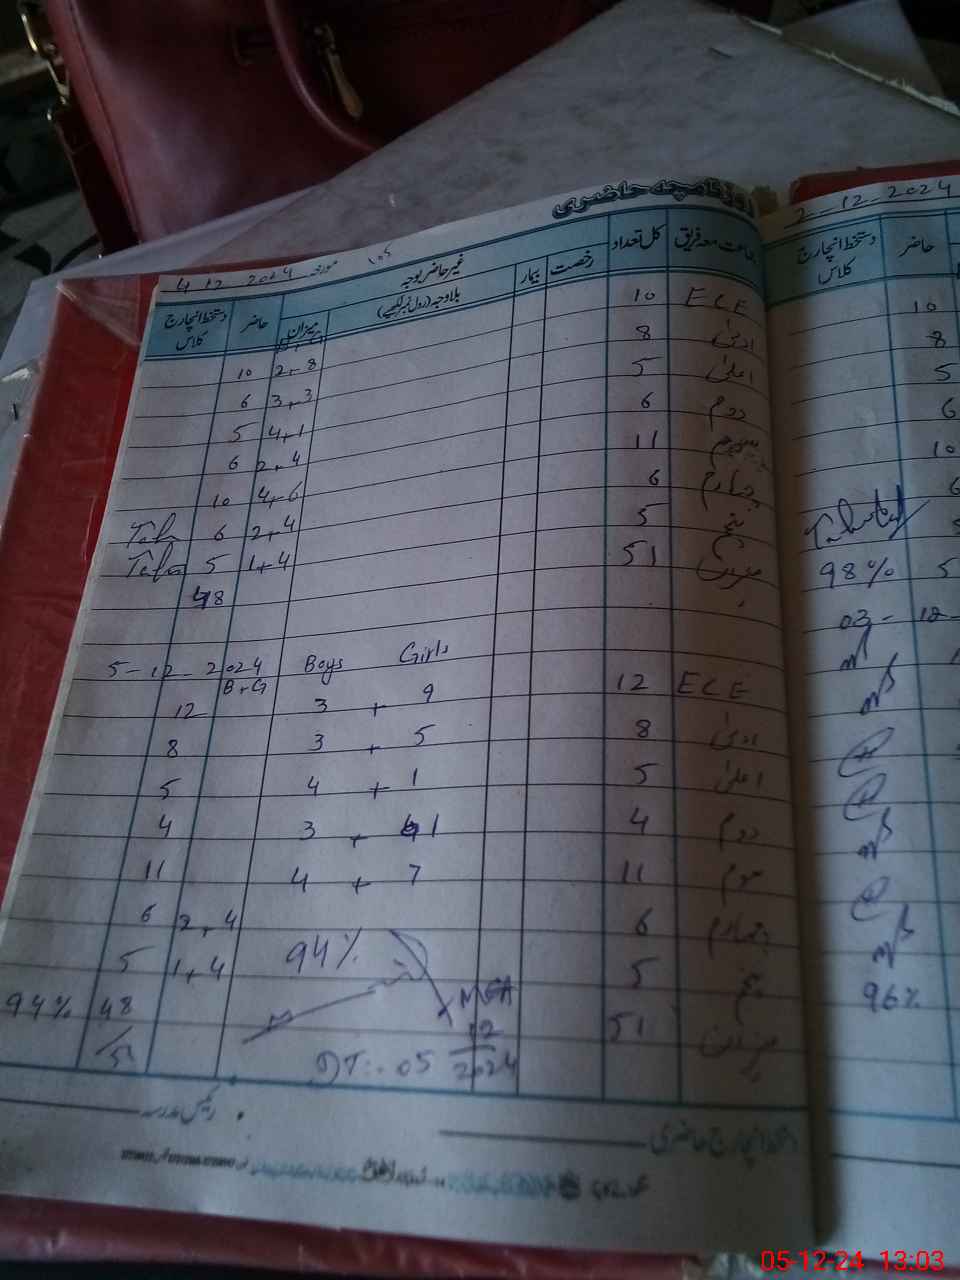 روزنامچہ حاضری
4-12-2024 مورخہ
جماعت معہ فریق کل تعداد رخصت بیمار غیر حاضر بوجہ حاضر دستخط انچارج کلاس
بلاوجہ (رول نمبر لکھیے) میزان
ECE 10 2+8 10
ادنیٰ 8 3+3 6
اعلیٰ 5 4+1 5
دوم 6 2+4 6
سوم 11 4+6 10
چہارم 6 2+4 6
پنجم 5 1+4 5
میزان 51 48
5-12-2024 Boys Girls
B+G
ECE 12 3 + 9 12
ادنیٰ 8 3 + 5 8
اعلیٰ 5 4 + 1 5
دوم 4 3 + 1 4
سوم 11 4 + 7 11
چہارم 6 2+4 6
پنجم 5 1+4 5
94%
میزان 51 48/51 94%
MEA
DT:. 05 12 2024
دستخط انچارج حاضری
رئیس مدرسہ
2-12-2024
حاضر دستخط انچارج کلاس
10
8
5
6
10
6
5
98%
03-12-
96%
05-12-24 13:03